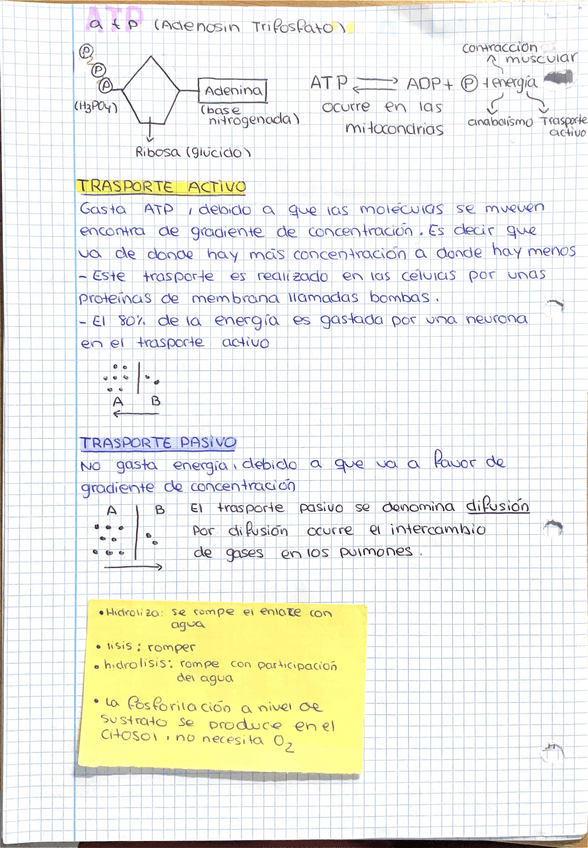 ATP
a t p (Adenosin Trifosfato)
P
P
P
(H3PO4)
Adenina
(base
nitrogenada)
Ribosa (glucido)
contracción
muscular
ATP ⇄ ADP + P + energía
ocurre en las
mitocondrias
anabolismo
Trasporte
activo
TRASPORTE ACTIVO
Gasta ATP, debido a que las moléculas se mueven
encontra de gradiente de concentración. Es decir que
va de donde hay más concentración a donde hay menos
- Este trasporte es realizado en las células por unas
proteínas de membrana llamadas bombas.
- El 80% de la energía es gastada por una neurona
en el trasporte activo
A B
TRASPORTE PASIVO
No gasta energía, debido a que va a favor de
gradiente de concentración
A B
El trasporte pasivo se denomina difusión
Por difusión ocurre el intercambio
de gases en los pulmones.
• Hidroliza: se rompe el enlace con
agua
• lisis: romper
• hidrolisis: rompe con participación
del agua
• La fosforilación a nivel de
sustrato se produce en el
citosol, no necesita O2